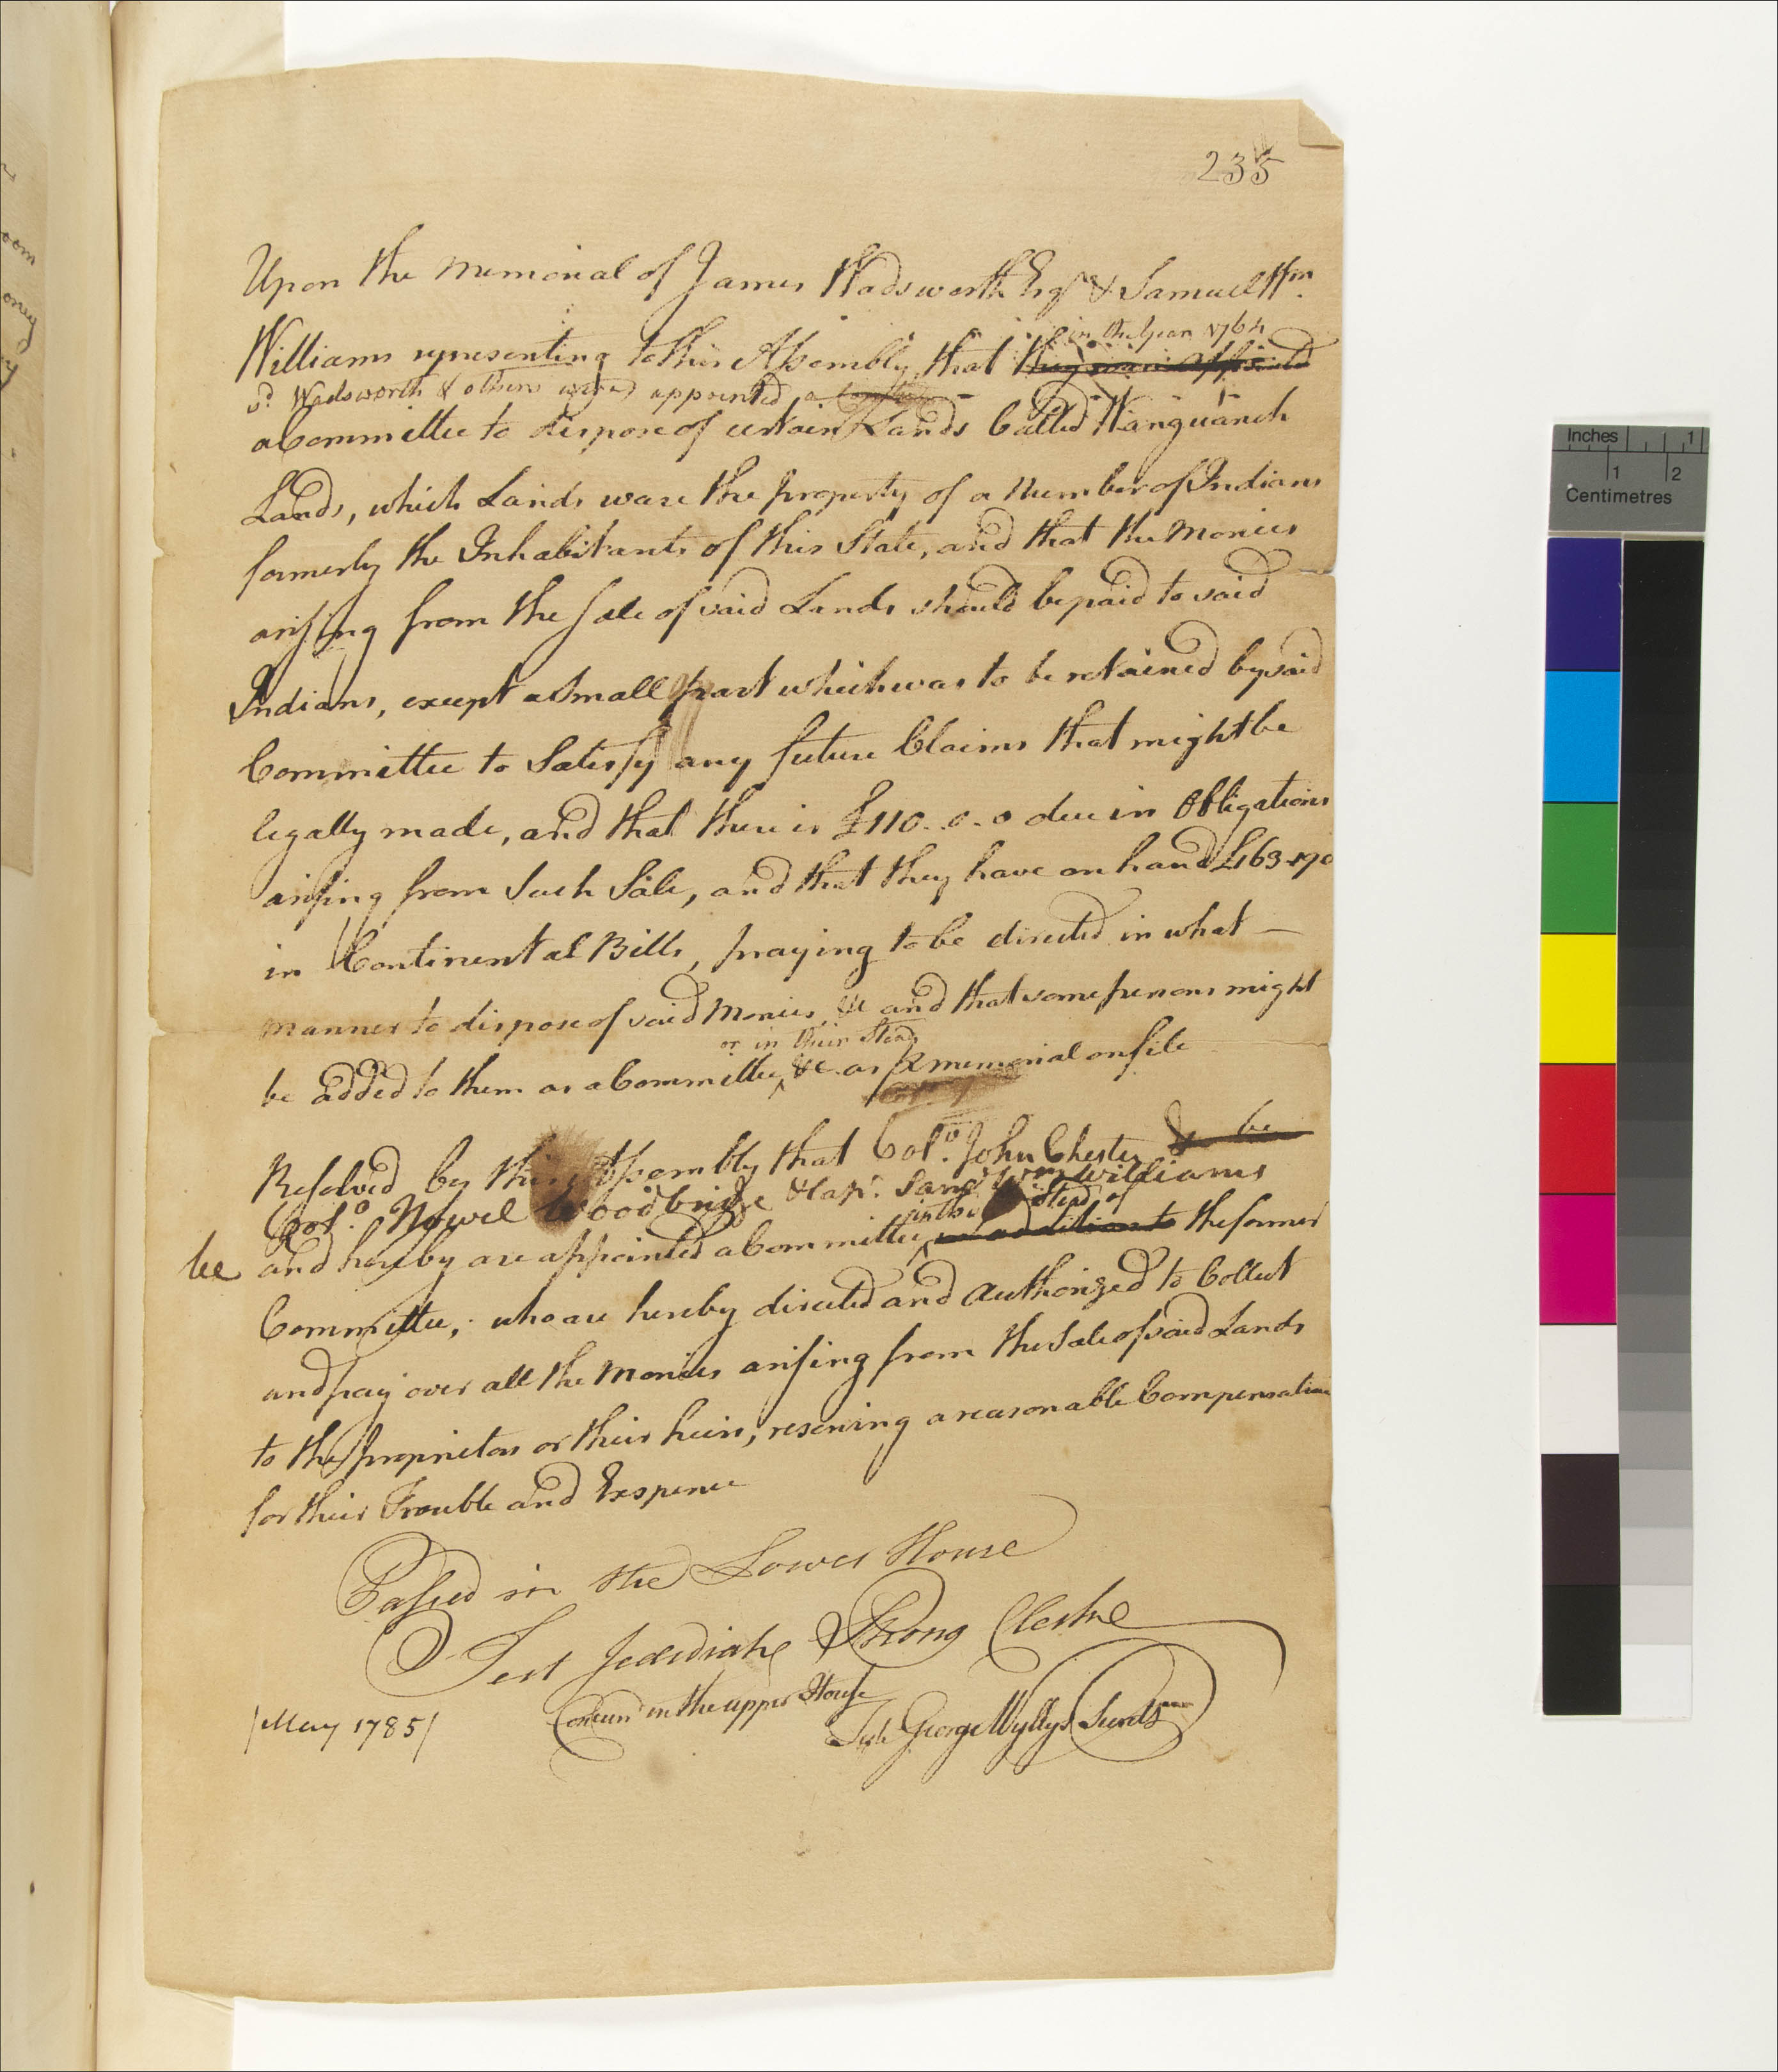 235
Upon the memorial of James Wadsworth Esqr & Samuel Wm.
Williams representing to this Assembly, that they were appointed
in the Year 1764
sd. Wadsworth & others were appointed a
a Committee to dispose of certain Lands Called Wanguanch
Lands, which Lands ware the property of a Number of Indians
formerly the Inhabitants of this State, and that the Monies
arising from the Sale of said Lands should be paid to said
Indians, except a small part which was to be retained by said
Committee to Satisfy any future Claims that might be
legally made, and that there is £110..0..0 due in Obligations
arising from Such Sale, and that they have on hand £163-17-0
in Continental Bills, praying to be directed in what —
manner to dispose of said Monies &c and that some persons might
or in their Stead
be added to them as a Committee, &c. as pr memorial on file
Resolved by this Assembly that Colo. John Chester & be
Colo. Howel Woodbridge & Capt. Saml Wm Williams
in the Stead of
be and hereby are appointed a Committee, in addition to the former
Committee, who are hereby directed and Authorized to Collect
and pay over all the Monies arising from the Sale of said Lands
to the proprietors or their heirs, reserving a reasonable Compensation
for their Trouble and Expence
Passed in the Lower House
Test Jedediah Strong Clerk
Concurd in the upper House
/May 1785/
Test George Wyllys Secrety